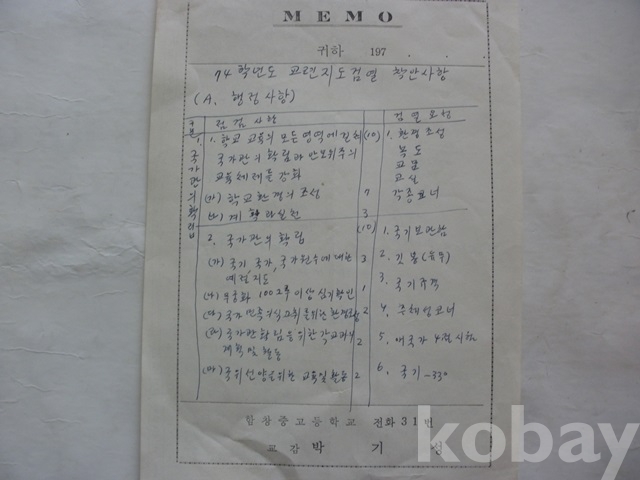 MEMO
귀하 197
74학년도 교련지도검열 착안사항
(A. 행정사항)
구분 점검사항 검열요령
1. 국가관의 확립
1. 학교 교육의 모든 영역에 걸쳐 (10)
국가관의 확립과 반공위주의
교육체제를 강화
(가) 학교환경의 조성 7
(나) 계획과 실천 3
1. 환경조성
복도
교문
교실
각종코너
2. 국가관의 확립 (10)
(가) 국기, 국가, 국가원수에 대한 3
예절지도
(나) 무궁화 100그루 이상 심기확인 1
(다) 국가 민족의식 고취를 위한 환경 2
(라) 국가관 확립을 위한 각 교과의 2
계획 및 활동
(마) 국위선양을 위한 교육및 활동 2
1. 국기보관함
2. 깃봉
3. 국기규격
4. 주체성코너
5. 애국가 4절 시창
6. 국기 -330
함창중고등학교 전화 31번
교감 박기성
kobay